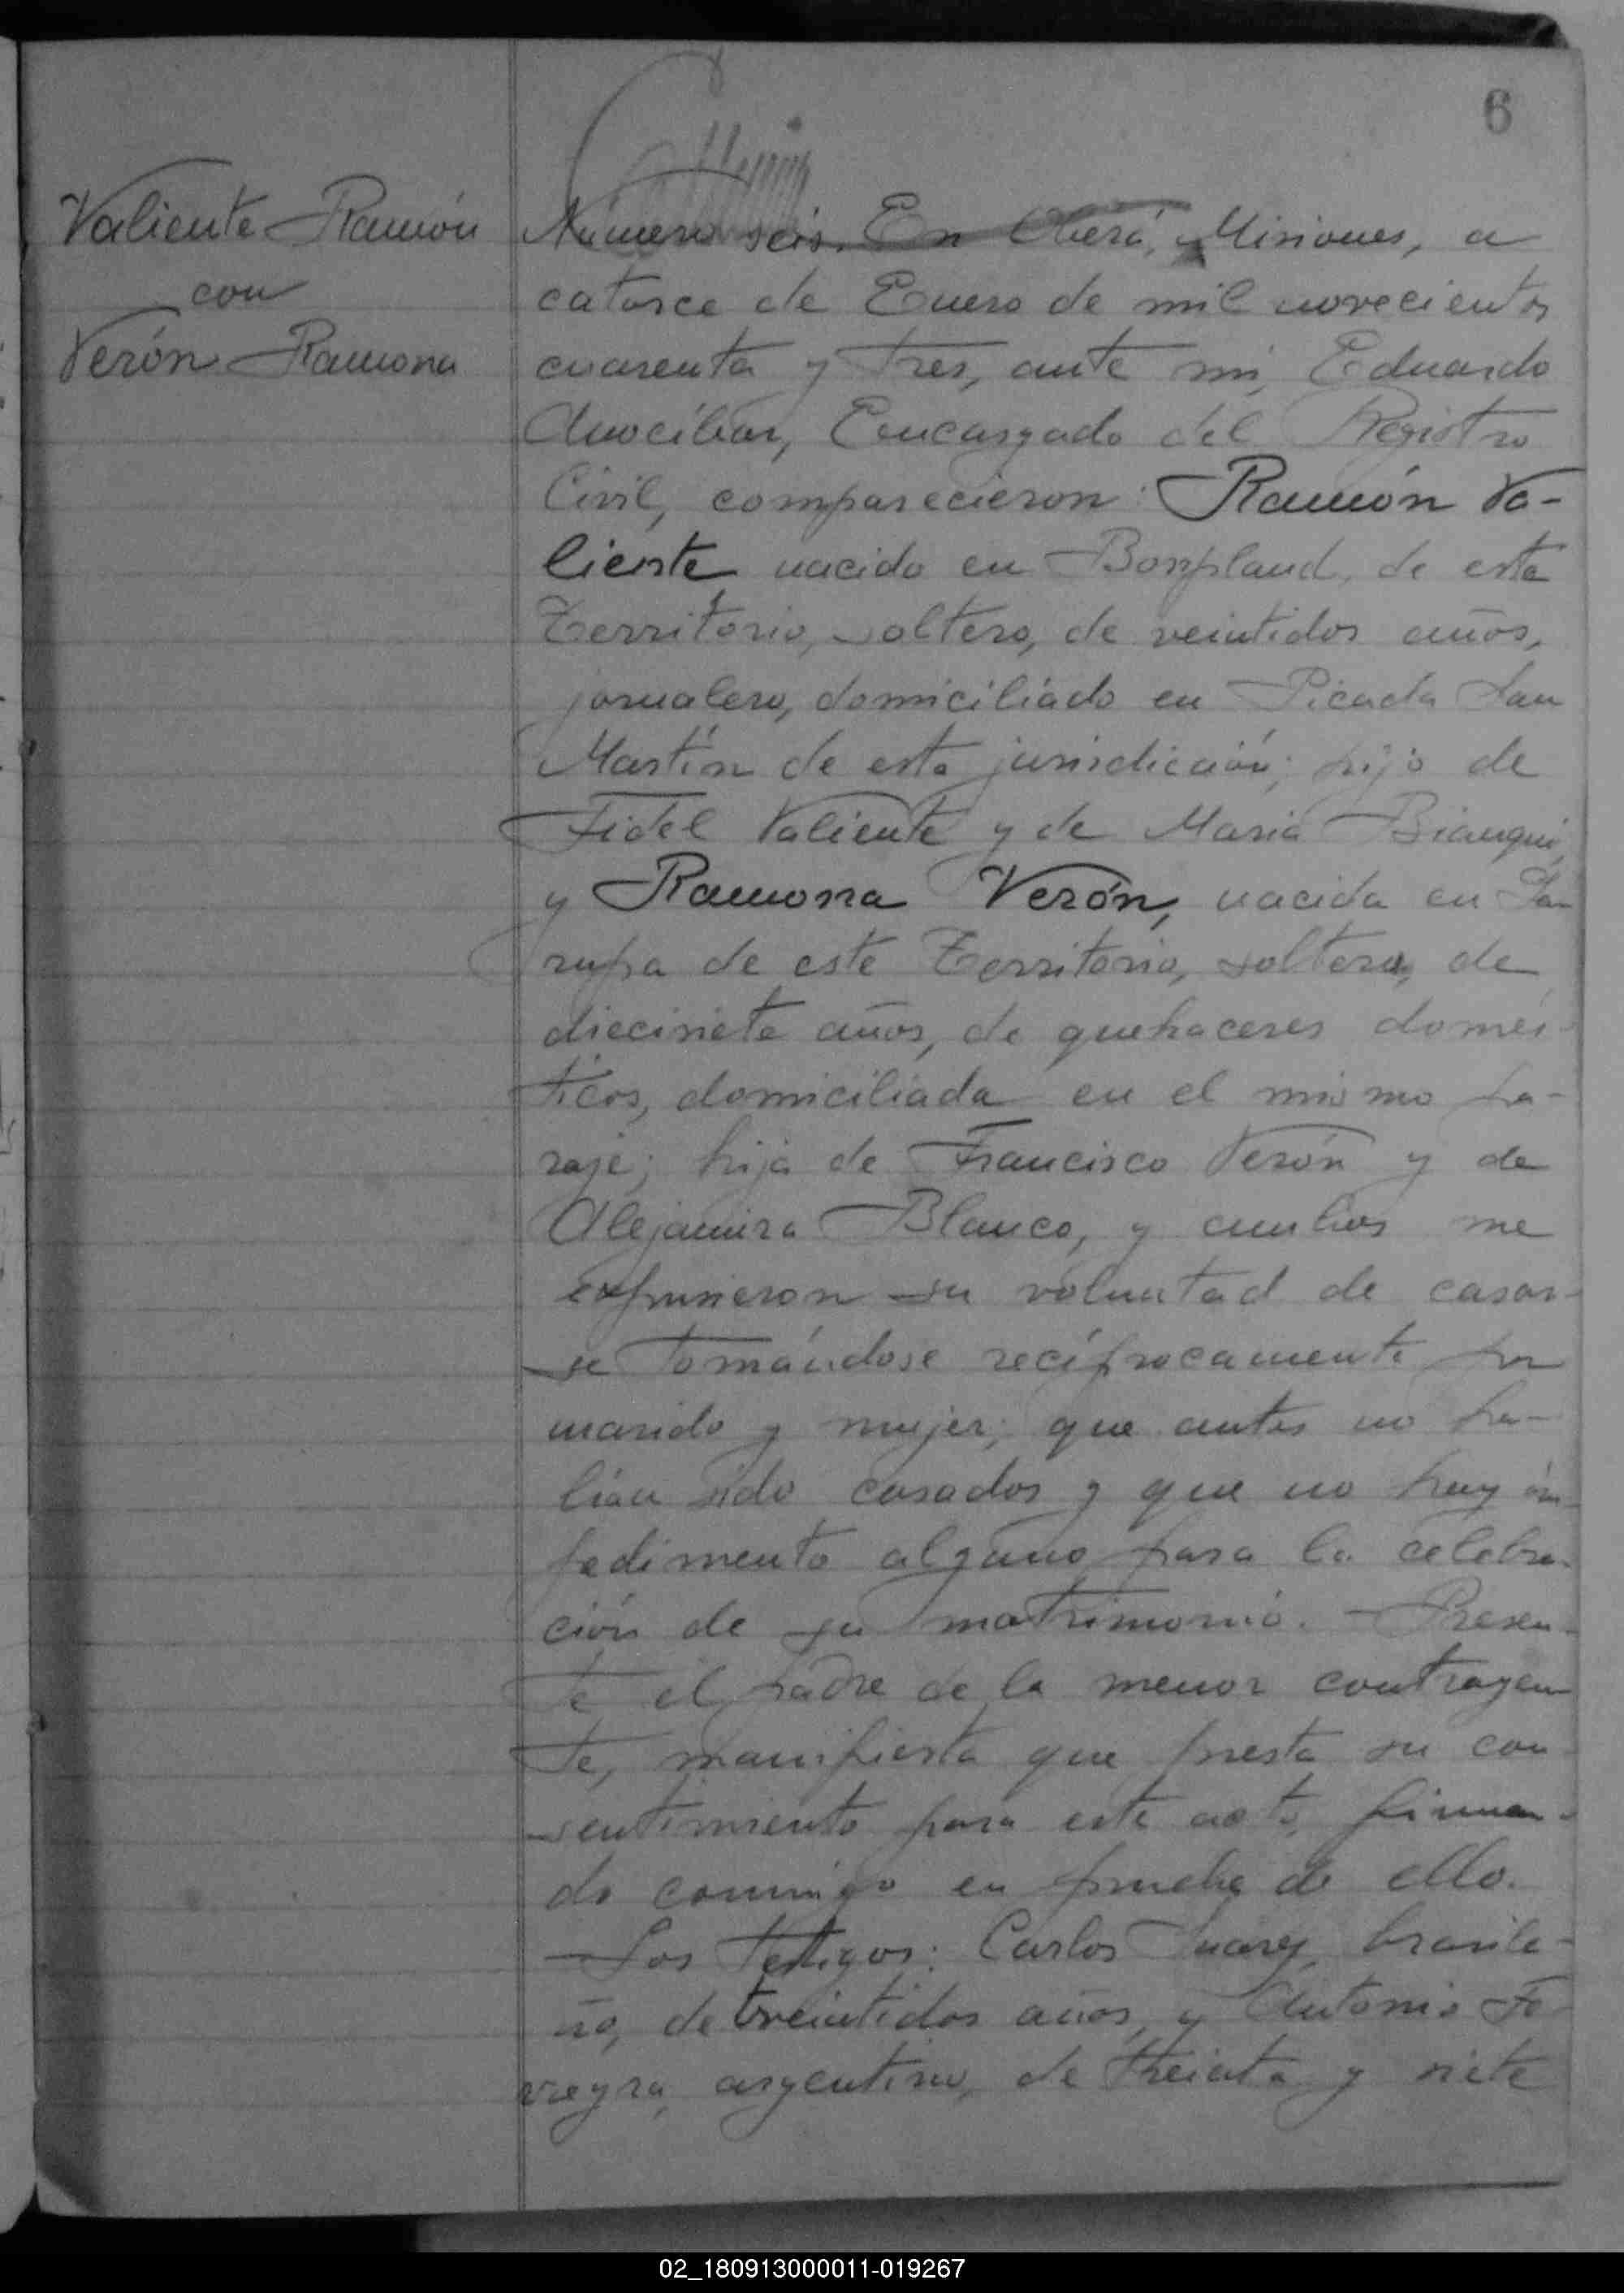 6
Valiente Ramón
con
Verón Ramona
Número seis. En Oberá, Misiones, a
catorce de Enero de mil novecientos
cuarenta y tres, ante mí, Eduardo
Encargado del Registro
Civil, comparecieron: Ramón Va-
liente nacido en Bonpland, de este
Territorio, soltero, de veintidos años,
jornalero, domiciliado en Picada San
Martín de esta jurisdicción; hijo de
Fidel Valiente y de Maria Bianqui,
y Ramona Verón, nacida en
de este Territorio, soltera, de
diecisiete años, de quehaceres domés-
ticos, domiciliada en el mismo pa-
raje; hija de Francisco Verón y de
Alejamira Blanco, y ambos me
expusieron su voluntad de casar-
se tomándose recíprocamente por
marido y mujer; que antes no ha-
bían sido casados y que no hay im-
pedimento alguno para la celebra-
ción de su matrimonio. Presen-
te el padre de la menor contrayen-
te, manifiesta que presta su con
sentimiento para este acto, firman-
do conmigo en prueba de ello.
Los testigos: Carlos Suarez, brasile-
ño, de treintidos años, y Antonio
argentino, de treinta y siete
02_180913000011-019267